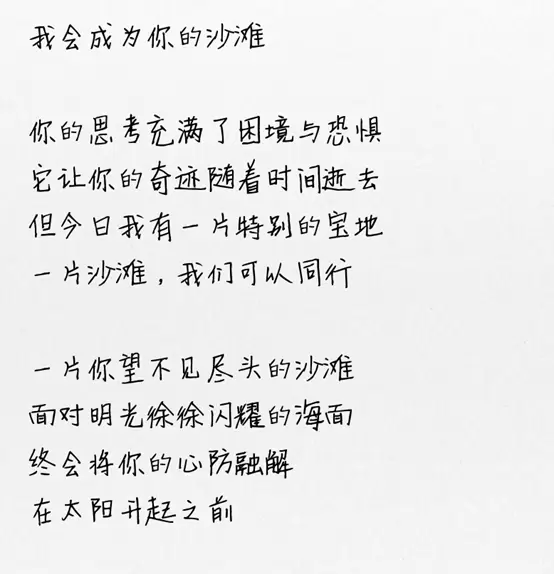 我会成为你的沙滩
你的思考充满了困境与恐惧
它让你的奇迹随着时间逝去
但今日我有一片特别的宝地
一片沙滩，我们可以同行
一片你望不见尽头的沙滩
面对明光徐徐闪耀的海面
终会将你的心防融解
在太阳升起之前